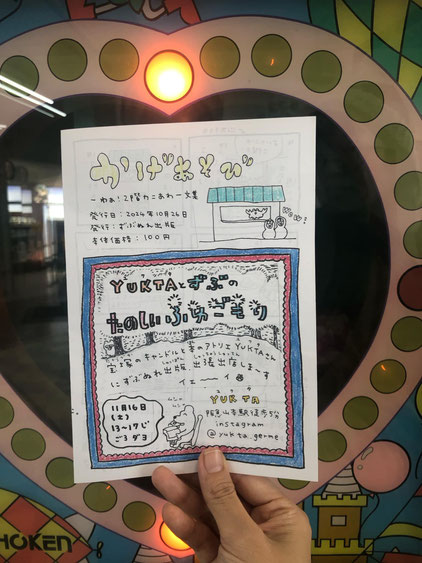 かげあそび
〜わぁ！2階カニあわー文集
発行日：2024年10月26日
発行：ずぶぬれ出版
本体価格：100円
WOW!
YUKTAとずぶの
たのしいふゆごもり
宝塚のキャンドルと革のアトリエYUKTAさん
にずぶぬれ出版 出張出店しまーす
イェーーイ
11月16日
(土)
13〜17じ
ごろダヨ
YUKTA
阪急山本駅徒歩5分
instagram
@yukta.germe
HOKEN